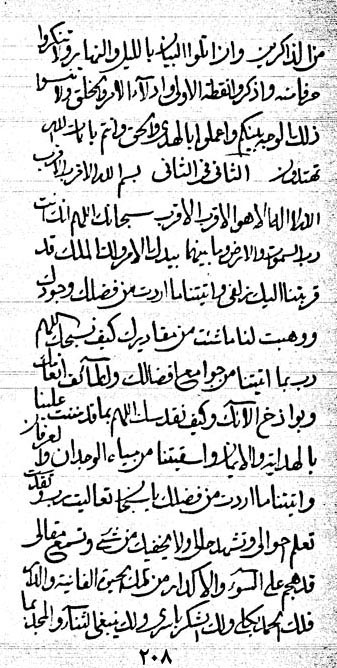 من الذاكرين وان اتلوا البيان بالليل والنهار ولا تنكروا
حرفا منه واذكروا نقطة الاولى وادلاء الامر والخلق ولا تنسوا
ذلك الوجه بينكم واعملوا بالهدى والحق وانتم بايات الله
تهتدون الثانى فى الثانى بسم الله الاقرب الاقرب
الله لا اله الا هو الاقرب الاقرب سبحانك اللهم انك انت
رب السموات والارض وما بينهما بيدك الامر ولك الملك قد
قربتنا اليك زلفى واتيتنا ما اردت من فضلك وجودك
ووهبت لنا ما شئت من مقاديرك كيف نسبحك اللهم
رب بما اتيتنا من جوامع افضالك ولطائف انعامك
وبواذخ الائك وكيف نقدسك اللهم بما قد مننت علينا
بالهداية والايمان واسقيتنا من مياه الوجدان والعرفان
واتيتنا ما اردت من فضلك يا سبحان تعاليت رب وتقدست
تعلم احوالى وتشهد حالى ولا يخفيك من شئ وتسمع مقالى
قد هجم على السوء والاكدار من تلك الحيوة الفانية واللك
فلك الحمد بكلى ولك الشكر باسرى ولك ينبغى الثناء والمجد بما
٢٠٨